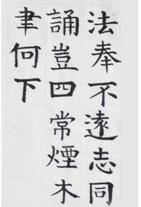 法奉不遠志同
誦豈四常煙木
聿何下